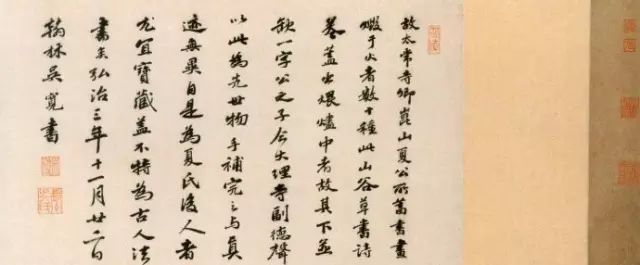 故太常寺卿崑山夏公所蓄書畫
燬于火者數十種此山谷草書詩
卷盖出煨燼中者故其下並
缺一字公之子今大理寺副德聲
以此為先世物手補完之与真
迹無異自是為夏氏後人者
尤宜寶藏盖不特為古人法
書矣弘治三年十一月廿二日
翰林吳寬書